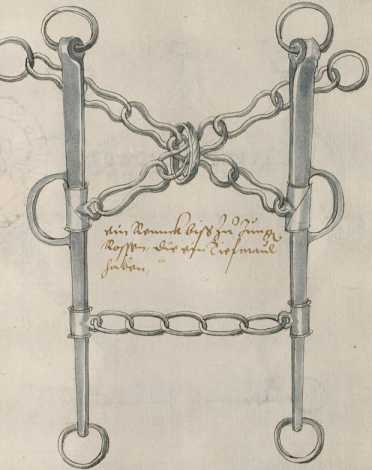 ein [...] biss zu Jung
Rossen, die ein Tiefmaul
haben